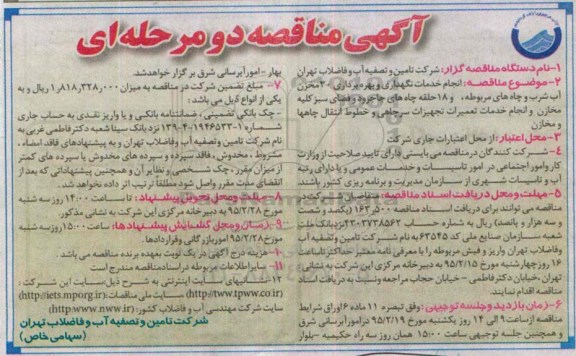 آگهی مناقصه دو مرحله ای
۱-نام دستگاه مناقصه گزار: شرکت تامین و تصفیه آب و فاضلاب تهران
۲-موضوع مناقصه: انجام خدمات نگهداری و بهره برداری ۲۰ مخزن
آب شرب و چاه های مربوطه، و ۱۸حلقه چاه های چاه خود و فضای سبز کلیه
مخازن و انجام خدمات تعمیرات تجهیزات سرچاهی و خطوط انتقال چاهها
و مخازن
۳-محل اعتبار: از محل اعتبارات جاری شرکت
۴-شرکت کنندگان در مناقصه می بایستی دارای تایید صلاحیت از وزارت
کار و امور اجتماعی در امور تاسیسات و خدمات عمومی و یا دارای رتبه
آب و تاسیسات شهری از سازمان مدیریت و برنامه ریزی کشور باشند
۵-مهلت و محل دریافت اسناد مناقصه: متقاضیان شرکت در
مناقصه می توانند برای دریافت اسناد مناقصه ۱۶۳٫۵۰۰ (یکصد و شصت
و سه هزار و پانصد) ریال به شماره حساب ۲۳۰۲۷۳۸۵۶۲ نزد بانک ملت
شعبه سازمان صنایع ملی کد ۶۳۵۴۵ به نام شرکت تامین و تصفیه آب
وفاضلاب تهران واریز و فیش مربوطه را با معرفی نامه معتبر حداکثر تا ساعت
۱۶ روز چهارشنبه مورخ ۹۵/۲/۱۵ به دبیرخانه مرکزی این شرکت به نشانی
تهران، خیابان دکتر فاطمی - خیابان حجاب مراجعه و نسبت به دریافت اسناد
مناقصه اقدام نمایند.
۶-زمان بازدید و جلسه توجیهی: وفق تبصره ۱۱ ماده ۶ اوراق شرایط
مناقصه از ساعت ۹ الی ۱۴ روز یکشنبه مورخ ۹۵/۲/۱۹ در امور آبرسانی شرق
و همچنین جلسه توجیهی ساعت ۱۵:۰۰ همان روز سه راه حکیمیه -بلوار
بهار -امور آبرسانی شرق برگزار خواهد شد.
۷- مبلغ تضمین شرکت در مناقصه به میزان ۱٫۸۱۸٫۳۲۸٫۰۰۰ ریال و به
یکی از انواع ذیل می باشد:
-چک بانکی تضمینی، ضمانتنامه بانکی و یا واریز نقدی به حساب جاری
شماره ۱-۱۹۴۶۵۳۳-۴۰-۱۳۹ نزد بانک سینا شعبه دکتر فاطمی غربی به
نام شرکت تامین و تصفیه آب وفاضلاب تهران و به پیشنهادهای فاقد امضاء،
مشروط، مخدوش، فاقد سپرده و سپرده های مخدوش یا سپرده های کمتر
از میزان مقرر، چک شخصی و نظایر آن و همچنین پیشنهاداتی که بعد از
انقضای مدت مقرر واصل شود مطلقاً ترتیب اثر داده نخواهد شد.
۸-مهلت و محل تحویل پیشنهاد: تا ساعت ۱۴:۰۰ روز سه شنبه
مورخ ۹۵/۲/۲۸ به دبیرخانه مرکزی این شرکت به نشانی مذکور.
۹-زمان و محل گشایش پیشنهادها: ساعت ۱۵:۰۰ روز سه شنبه
مورخ ۹۵/۲/۲۸ امور بازرگانی و قراردادها.
۱۰-هزینه درج آگهی در یک نوبت بعهده برنده مناقصه می باشد.
۱۱- سایر اطلاعات مربوطه در اسناد مناقصه مندرج است
۱۲- نشانیهای سایت اینترنتی به شرح ذیل: سایت این شرکت:
(http://tww.tpww.co.ir) سایت ملی مناقصات: (http://iets.mporg.ir)
سایت شرکت مهندسی آب و فاضلاب کشور: (http:www.nww.ir)
شرکت تامین و تصفیه آب و فاضلاب تهران
(سهامی خاص)